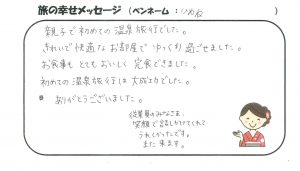 旅の幸せメッセージ（ペンネーム：ひめね）
親子で初めての温泉旅行でした。
きれいで快適なお部屋でゆっくり過ごせました。
お食事もとてもおいしく完食できました。
初めての温泉旅行は大成功でした。
ありがとうございました。
従業員のみなさま、
笑顔で話しかけてくれて
うれしかったです。
また来ます。